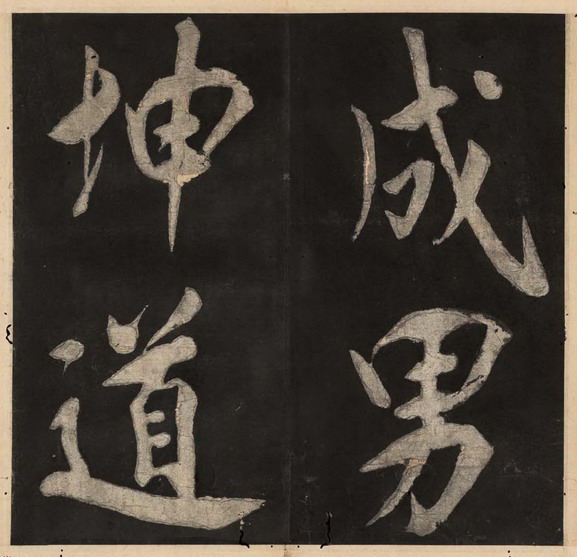 成男
坤道